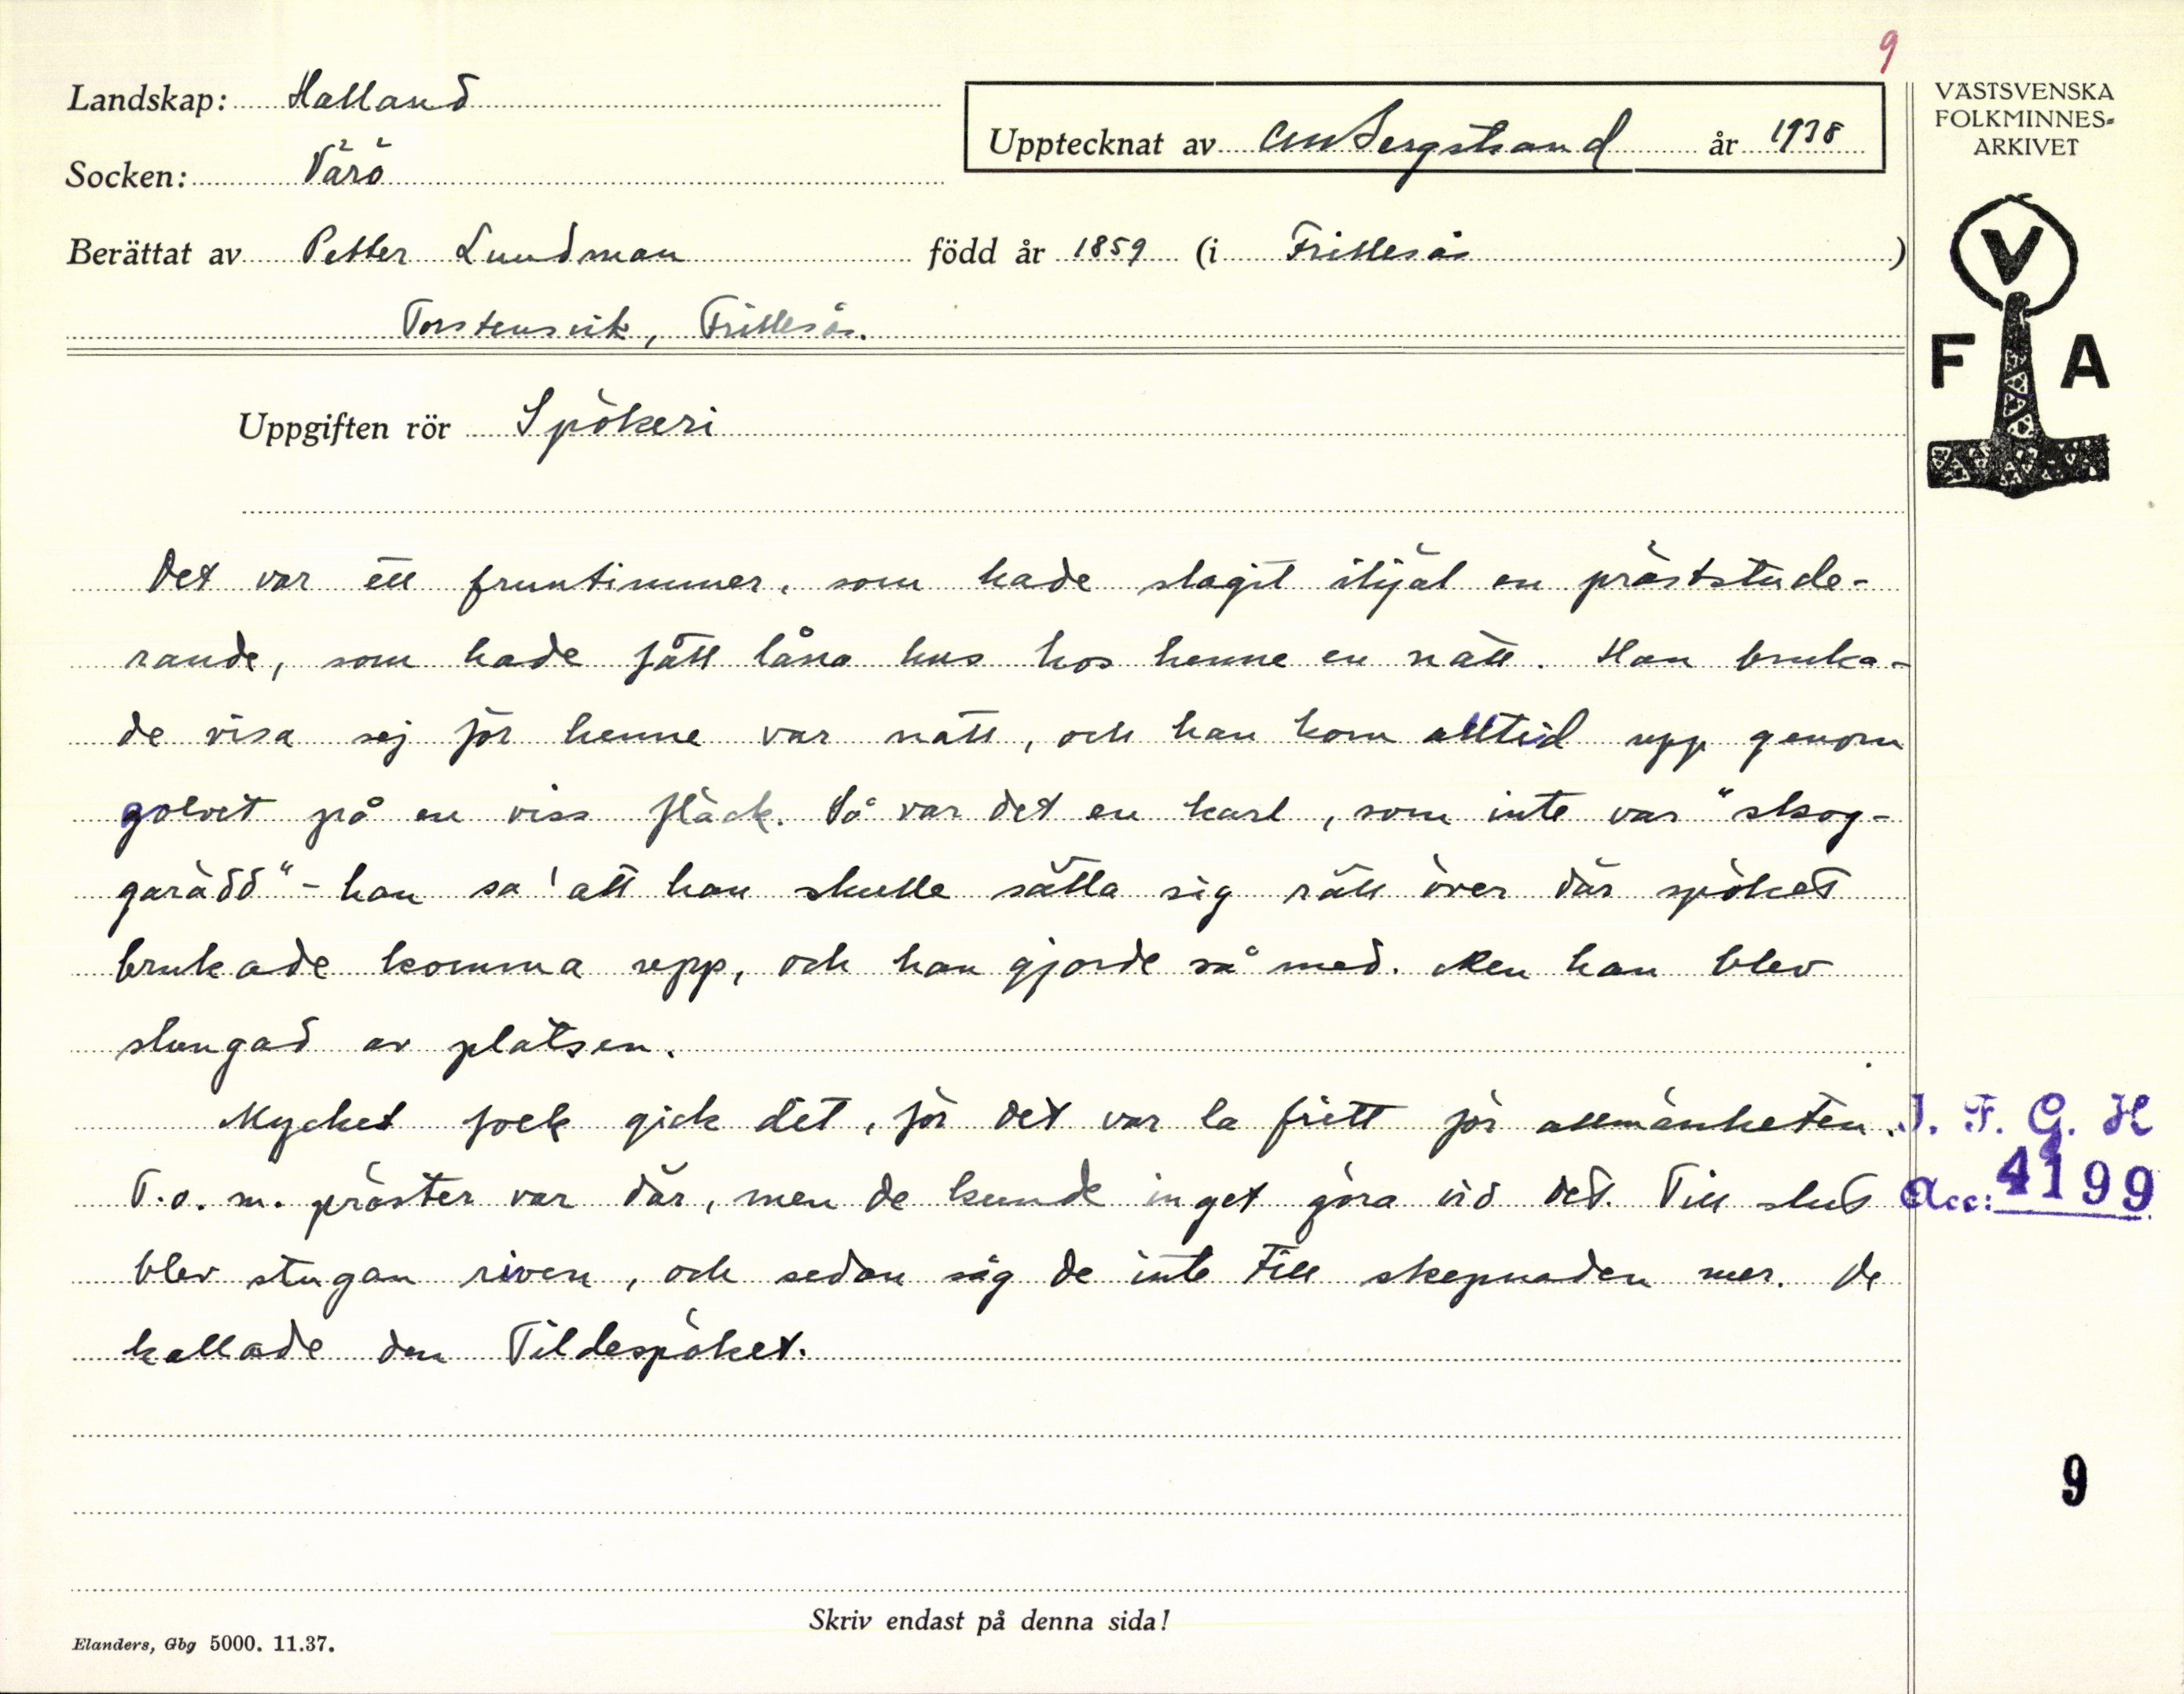 9
Landskap: Halland
Socken: Värö
Upptecknat av CMBergstrand år 1938
VÄSTSVENSKA
FOLKMINNES-
ARKIVET
Berättat av Petter Lundman född år 1859 (i Frillesås)
Torstensvik, Frillesås.
V
F A
Uppgiften rör Spökeri
Det var ett fruntimmer, som hade slagit ihjäl en präststude-
rande, som hade fått låna hus hos henne en natt. Han bruka-
de visa sej för henne var natt, och han kom alltid upp genom
golvet på en viss fläck. Så var det en karl, som inte var "skog-
garädd" - han sa' att han skulle sätta sig rätt över där spöket
brukade komma upp, och han gjorde så med. Men han blev
slungad av platsen.
Mycket folk gick dit, för det var la fritt för allmänheten.
T.o.m. präster var där, men de kunde inget göra vid det. Till slut
blev stugan riven, och sedan såg de inte till skepnaden mer. De
kallade den Tildespöket.
I. F. G. H
Acc: 4199
9
Skriv endast på denna sida!
Elanders, Gbg 5000. 11.37.